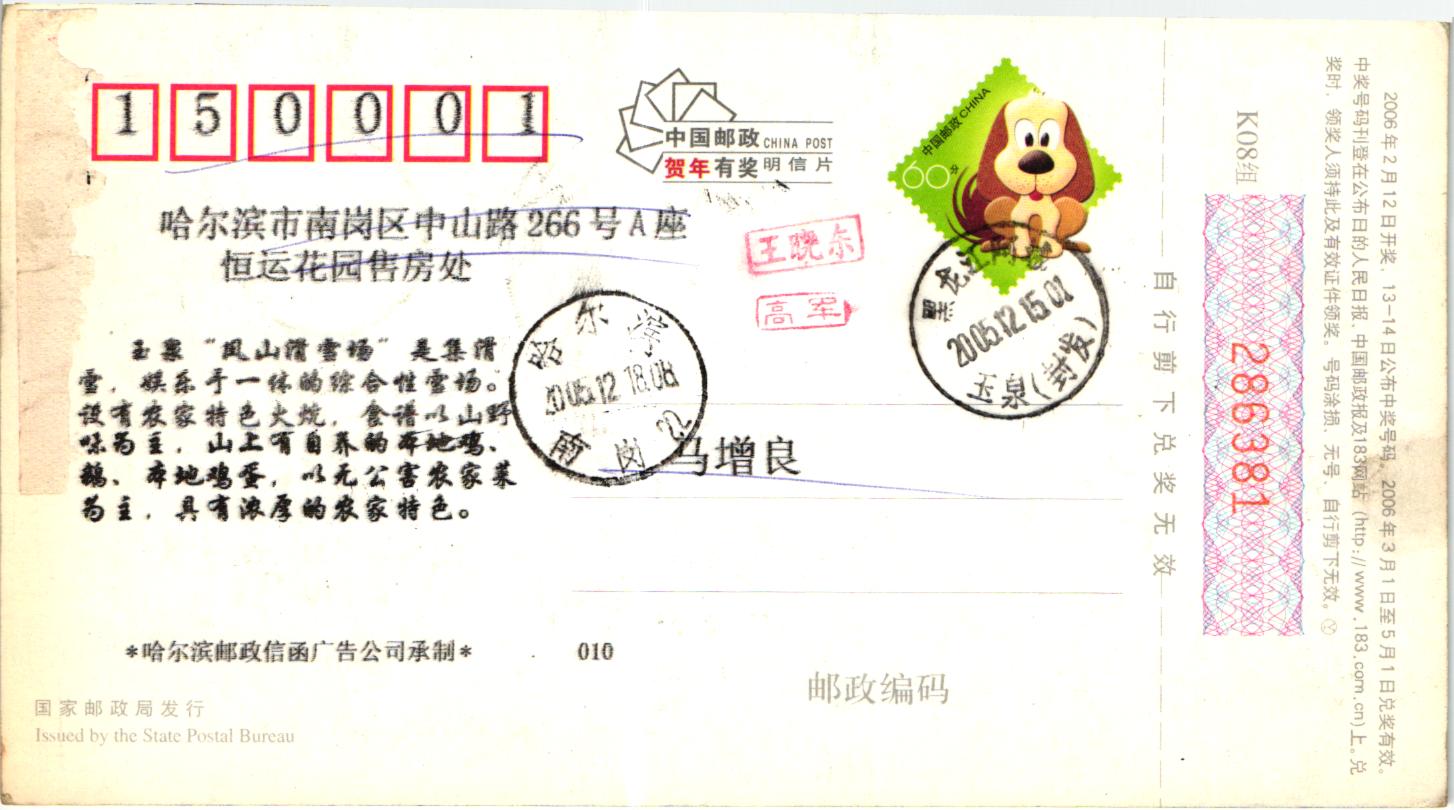 150001
中国邮政 CHINA POST
贺年有奖明信片
中国邮政 CHINA
60分
哈尔滨市南岗区中山路266号A座
恒运花园售房处
王晓东
高军
玉泉“凤山滑雪场”是集滑
雪，娱乐于一体的综合性雪场。
设有农家特色火炕，食谱以山野
味为主，山上有自养的本地鸡、
鹅、本地鸡蛋，以无公害农家菜
为主，具有浓厚的农家特色。
哈尔滨
2005.12.18.08
南岗 22
黑龙江
2005.12.15.01
玉泉(封发)
冯增良
*哈尔滨邮政信函广告公司承制*
010
邮政编码
国家邮政局发行
Issued by the State Postal Bureau
自行剪下兑奖无效
K08组
286381
2006年2月12日开奖，13-14日公布中奖号码。2006年3月1日至5月1日兑奖有效。
中奖号码刊登在公布日的人民日报、中国邮政报及183网站（http://www.183.com.cn)上。兑
奖时，领奖人须持此及有效证件领奖。号码涂损、无号、自行剪下无效。